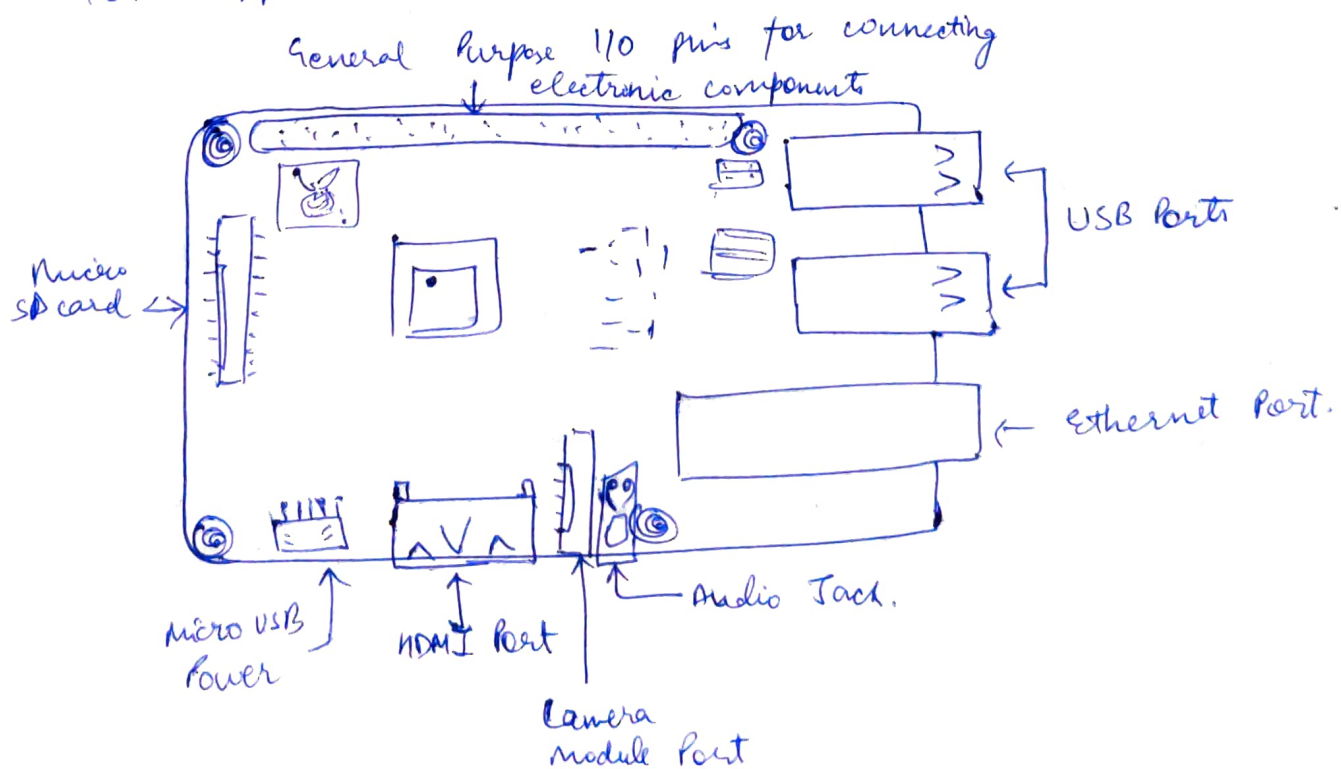 General Purpose I/O pins for connecting
electronic components
USB Ports
Micro
SD card
Ethernet Port.
Audio Jack.
Micro USB
Power
HDMI Port
Camera
Module Port